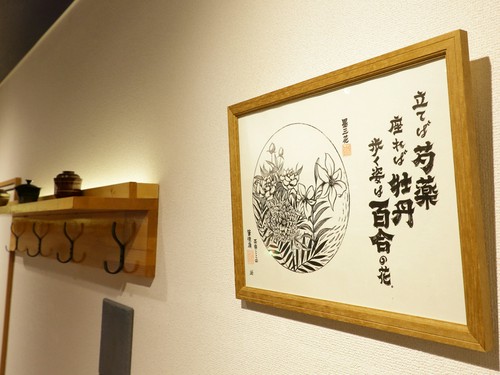 立てば芍薬
座れば牡丹
歩く姿は百合の花。